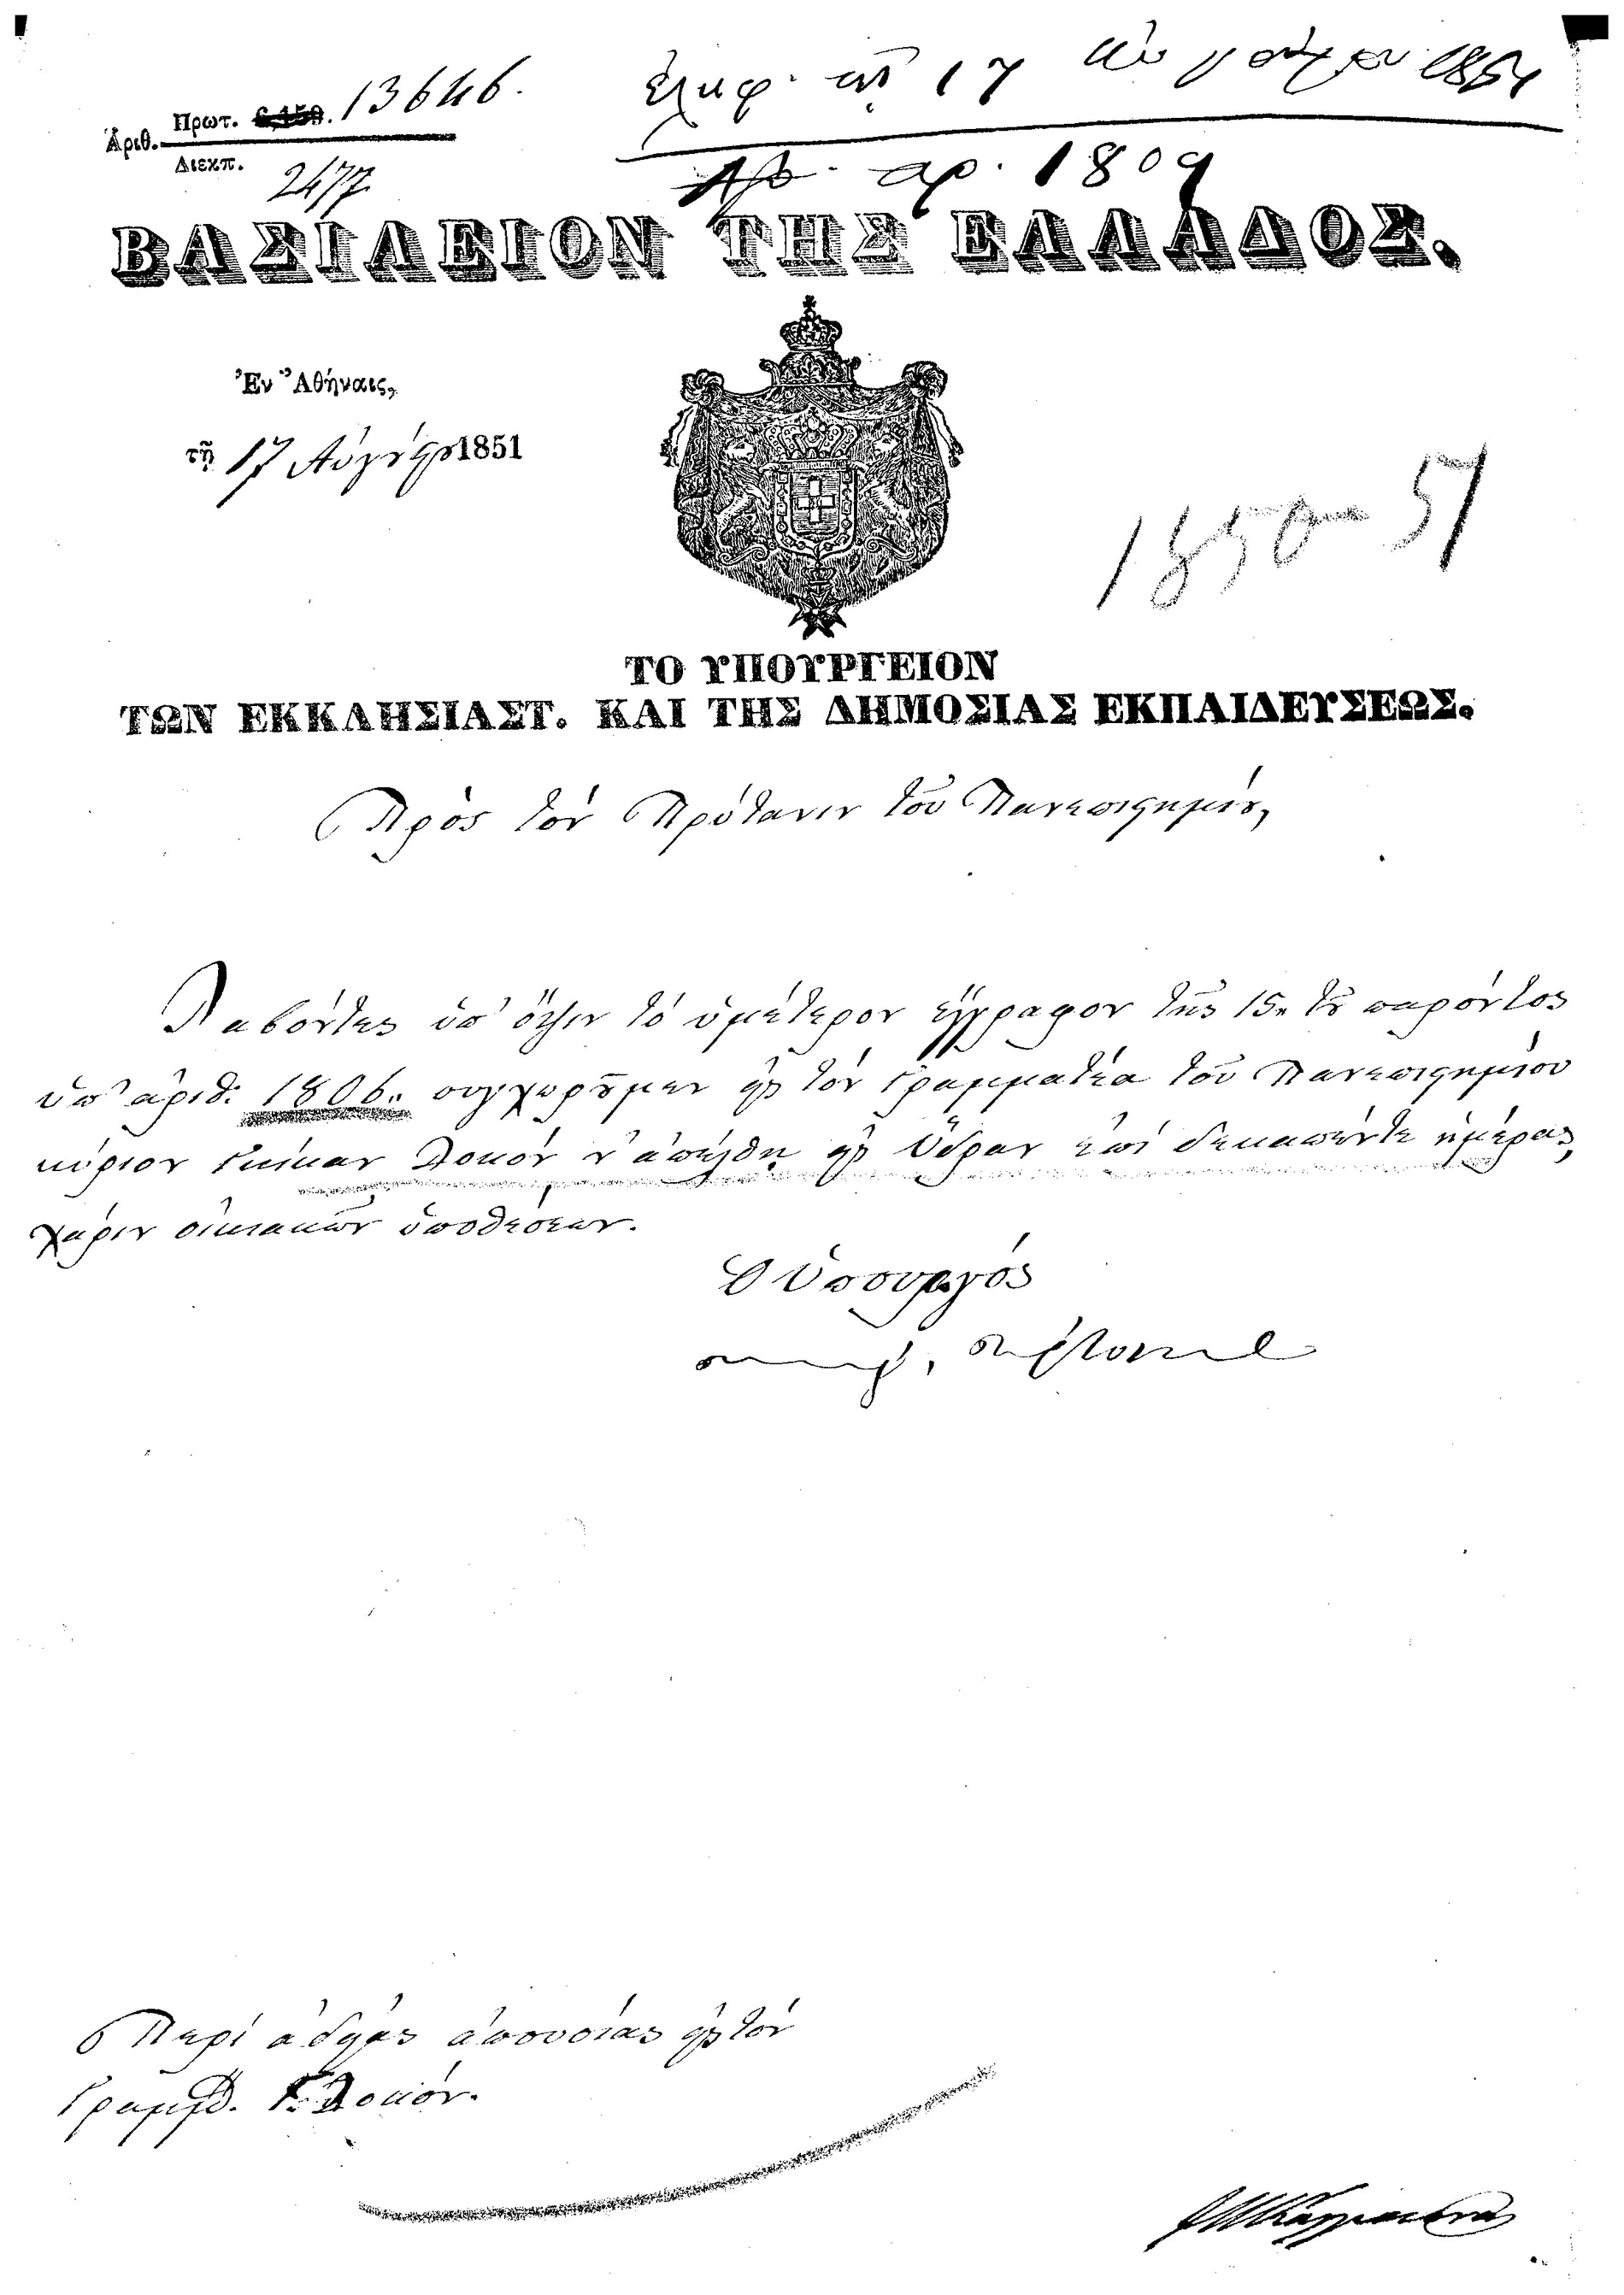 Πρωτ. 13646.
Ἀριθ.
Διεκπ. 2477.
ἐλήφ. τῇ 17 Αὐγούστου 1851
Πρ. ἀρ. 1809
ΒΑΣΙΛΕΙΟΝ ΤΗΣ ΕΛΛΑΔΟΣ.
Ἐν Ἀθήναις,
τῇ 17 Αὐγούστου 1851
1850-51
ΤΟ ΥΠΟΥΡΓΕΙΟΝ
ΤΩΝ ΕΚΚΛΗΣΙΑΣΤ. ΚΑΙ ΤΗΣ ΔΗΜΟΣΙΑΣ ΕΚΠΑΙΔΕΥΣΕΩΣ.
Πρὸς τὸν Πρύτανιν τοῦ Πανεπιστημίου,
Λαβόντες ὑπ' ὄψιν τὸ ὑμέτερον ἔγγραφον τῆς 15 τοῦ παρόντος
ὑπ' ἀριθ: 1806. συγχωροῦμεν εἰς τὸν Γραμματέα τοῦ Πανεπιστημίου
κύριον Γκίκαν Δοκόν ν' ἀπέλθῃ εἰς Ὕδραν ἐπὶ δεκαπέντε ἡμέρας,
χάριν οἰκιακῶν ὑποθέσεων.
Ὁ Ὑπουργός
Περὶ ἀδείας ἀπουσίας εἰς τὸν
Γραμμτ. Γ. Δοκόν.